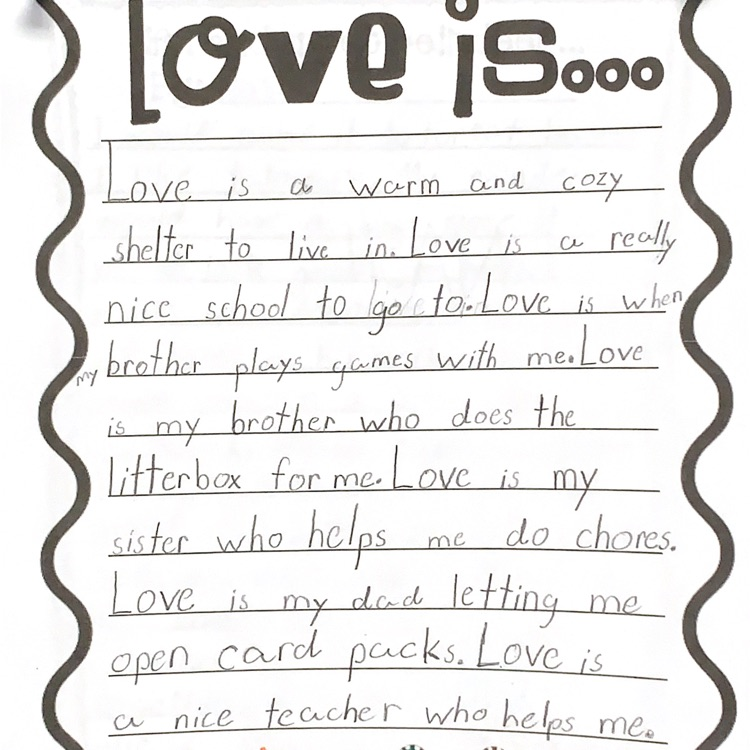 Love is...
Love is a warm and cozy
shelter to live in. Love is a really
nice school to go to. Love is when
my brother plays games with me. Love
is my brother who does the
litterbox for me. Love is my
sister who helps me do chores.
Love is my dad letting me
open card packs. Love is
a nice teacher who helps me.